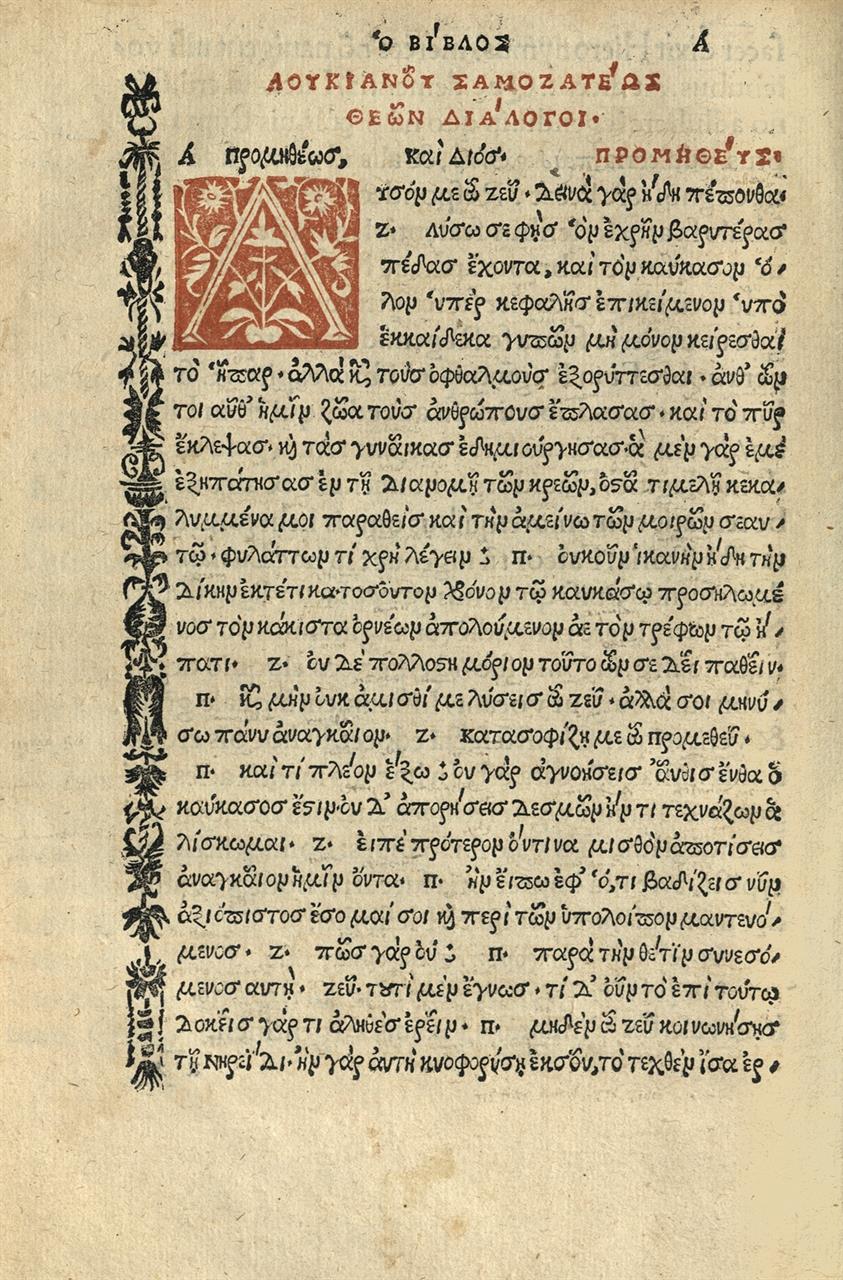 Ὁ ΒΊΒΛΟΣ Α
ΛΟΥΚΙΑΝΟῦ ΣΑΜΟΖΑΤΈΩΣ
ΘΕῶΝ ΔΙΆΛΟΓΟΙ.
Α Προμηθέωσ, καὶ Διόσ. ΠΡΟΜΗΘΕΎΣ.
Λ υσόν με ὦ ζεῦ. Δεινὰ γὰρ ἤδη πέπονθα.
Ζ. λύσω σε φῂσ ὃν ἐχρῆν βαρυτέρασ
πέδασ ἔχοντα, καὶ τὸν καύκασον ὅ-
λον ὑπὲρ κεφαλῆσ ἐπικείμενον ὑπὸ
ἑκκαίδεκα γυπῶν μὴ μόνον κείρεσθαι
τὸ ἧπαρ. ἀλλὰ κ̀ τοὺσ ὀφθαλμοὺσ ἐξορύττεσθαι. ἀνθ' ὧν
τοι αῦθ' ἡμῖν ζῶα τοὺσ ἀνθρώπουσ ἔπλασασ. καὶ τὸ πῦρ
ἔκλεψασ. κ̀ τὰσ γυναῖκασ ἐδημιούργησασ. ἃ μὲν γὰρ ἐμέ
ἐξηπάτησασ ἐν τῇ Διανομῇ τῶν κρεῶν, ὀστᾶ τιμελῇ κεκα-
λυμμένα μοι παραθεὶσ καὶ τὴν ἀμείνω τῶν μοιρῶν σεαυ-
τῷ. φυλάττων τί χρὴ λέγειν ; Π. ὀυκοῦν ἱκανὴν ἤδη τὴν
Δίκην ἐκτέτικα. τοσοῦτον χρόνον τῷ καυκάσῳ προσηλωμέ
νοσ τὸν κάκιστα ὀρνέων ἀπολούμενον ἀετὸν τρέφων τῷ ἥ-
πατι. Ζ. ὀυ Δὲ πολλοστημόριον τοῦτο ὧν σε Δεῖ παθεῖν.
Π. κ̀ μὴν ὀυκ ἀμισθί με λύσεισ ὦ ζεῦ. ἀλλά σοι μηνύ-
σω πάνυ ἀναγκαῖον. Ζ. κατασοφίζῃ με ὦ προμεθεῦ.
Π. καὶ τί πλέον ἕξω ; ὀυ γὰρ ἀγνοήσεισ ἄυθισ ἔνθα ὁ
καύκασοσ ἔστιν. ὀυ Δ' ἀπορήσεισ Δεσμῶν ἤν τι τεχνάζων ἁ
λίσκωμαι. Ζ. ἐιπὲ πρότερον ὅντινα μισθὸν ἀποτίσεισ
ἀναγκαῖον ἡμῖν ὄντα. Π. ἢν ἔιπω ἐφ' ὅ,τι βαδίζεισ νῦν
ἀξιόπιστοσ ἔσομαί σοι κ̀ περὶ τῶν ὑπολοίπον μαντευό-
μενοσ. Ζ. πῶσ γὰρ ὀύ ; Π. παρὰ τὴν θέτιν συνεσό-
μενοσ αυτῇ. Ζεῦ. τουτὶ μὲν ἔγνωσ. τί Δ' ὀῦν τὸ ἐπὶ τούτῳ
Δοκεῖσ γάρ τι ἀληθὲσ ἐρεῖν. Π. μηδὲν ὦ ζεῦ κοινωνήσῃσ
τῇ Νηρεΐδι. ἢν γὰρ ἀυτὴ κυοφορήσῃ ἐκσοῦ, τὸ τεχθὲν ἴσα ἐρ-